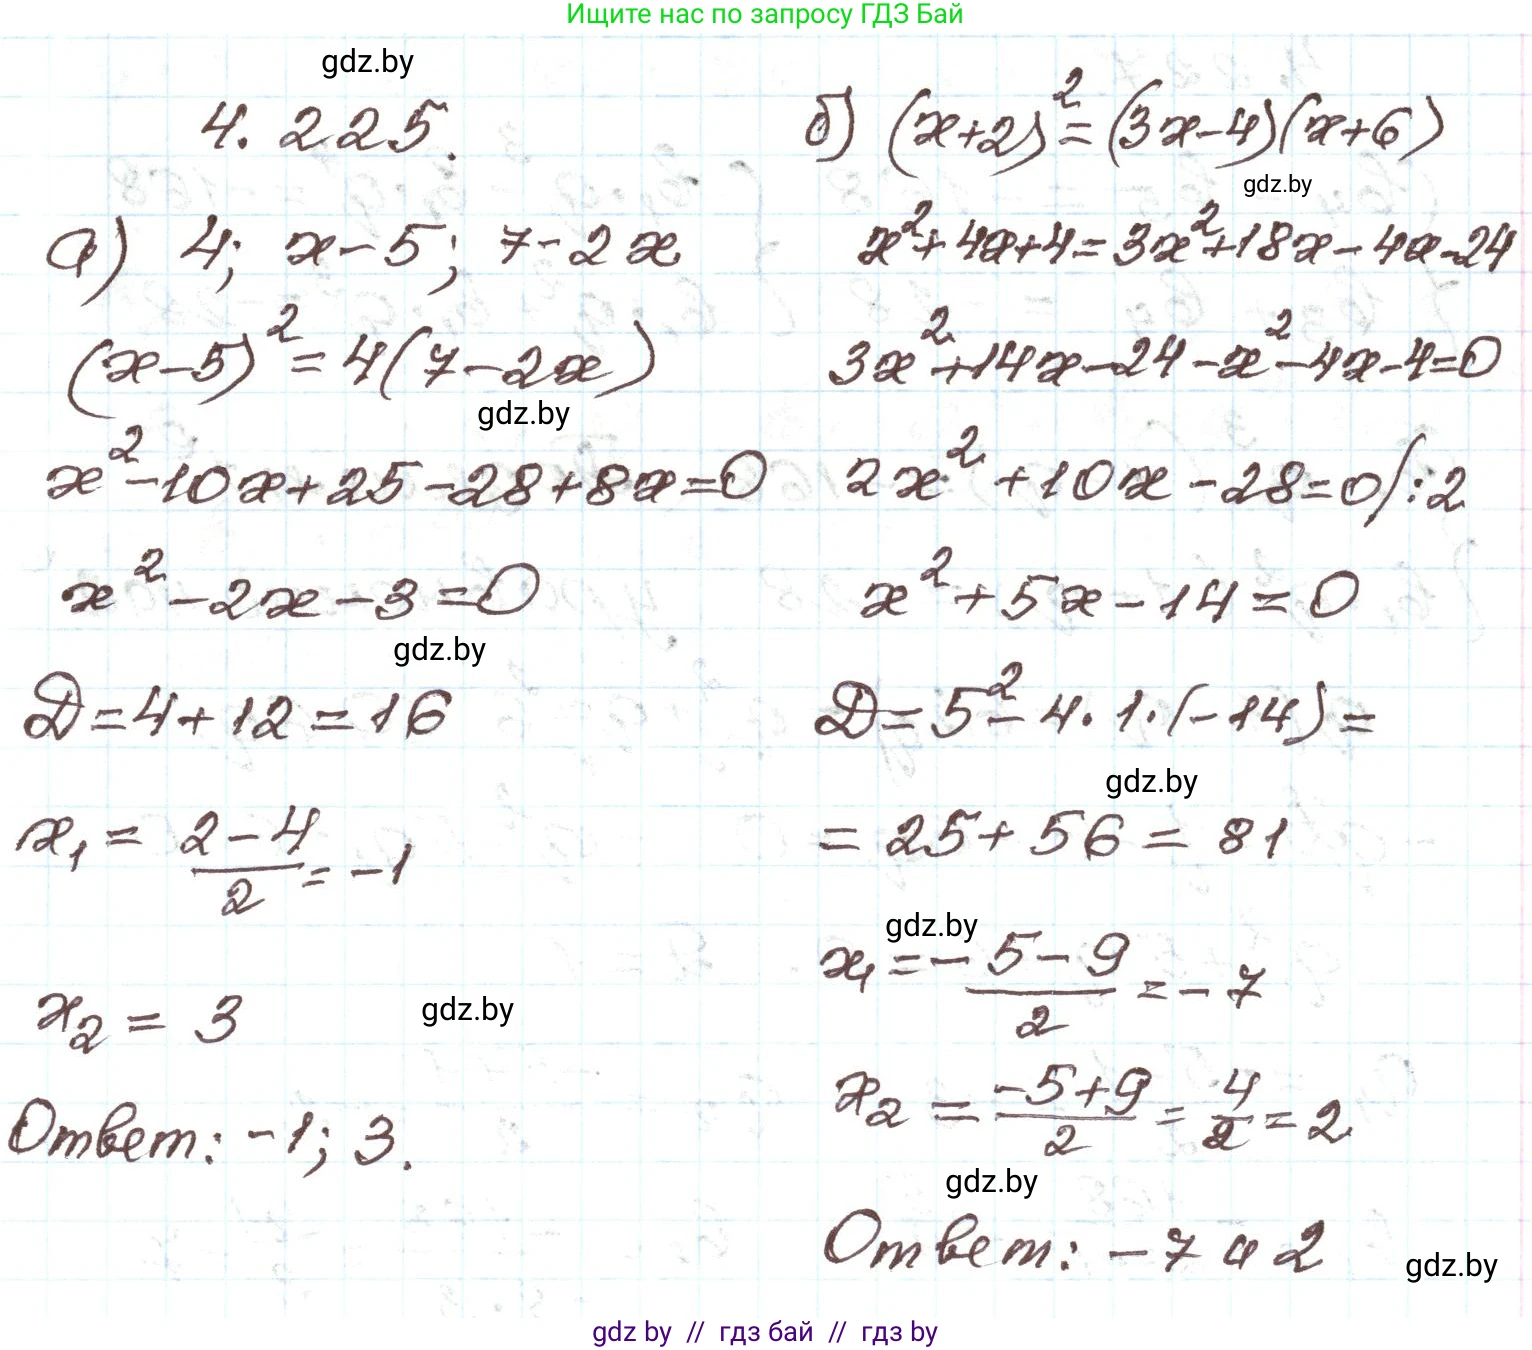 Ищите нас по запросу ГДЗ Бай
gdz.by
4.225.
а) 4; x-5; 7-2x
(x-5)²=4(7-2x)
gdz.by
x²-10x+25-28+8x=0
x²-2x-3=0
gdz.by
D=4+12=16
x₁ = (2-4)/2 = -1
x₂ = 3
gdz.by
Ответ: -1; 3.
б) (x+2)²=(3x-4)(x+6)
gdz.by
x²+4x+4=3x²+18x-4x-24
3x²+14x-24-x²-4x-4=0
2x²+10x-28=0/:2
x²+5x-14=0
D=5²-4·1·(-14)=
gdz.by
=25+56=81
gdz.by
x₁=-(5-9)/2=-7
x₂=(-5+9)/2=4/2=2
gdz.by
Ответ: -7 и 2
gdz.by
gdz by // гдз бай // гдз by